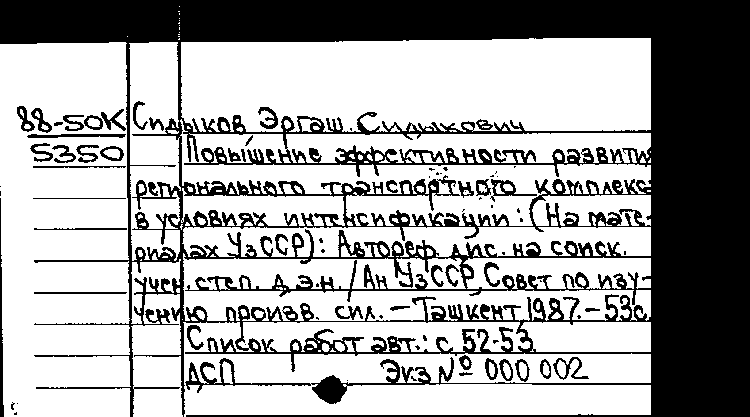 88-50К Сидыков Эргаш Сидыкович
5350 Повышение эффективности развития
регионального транспортного комплекса
в условиях интенсификации: (На мате-
риалах УзССР): Автореф. дис. на соиск.
учен. степ. д.э.н. / Ан УзССР, Совет по изу-
чению произв. сил. – Ташкент, 1987. – 53с.
Список работ авт.: с. 52-53.
ДСП Экз № 000 002